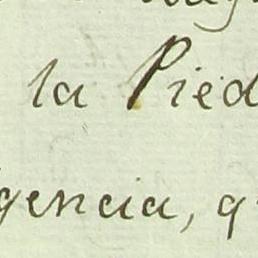 la Pied
gencia, q